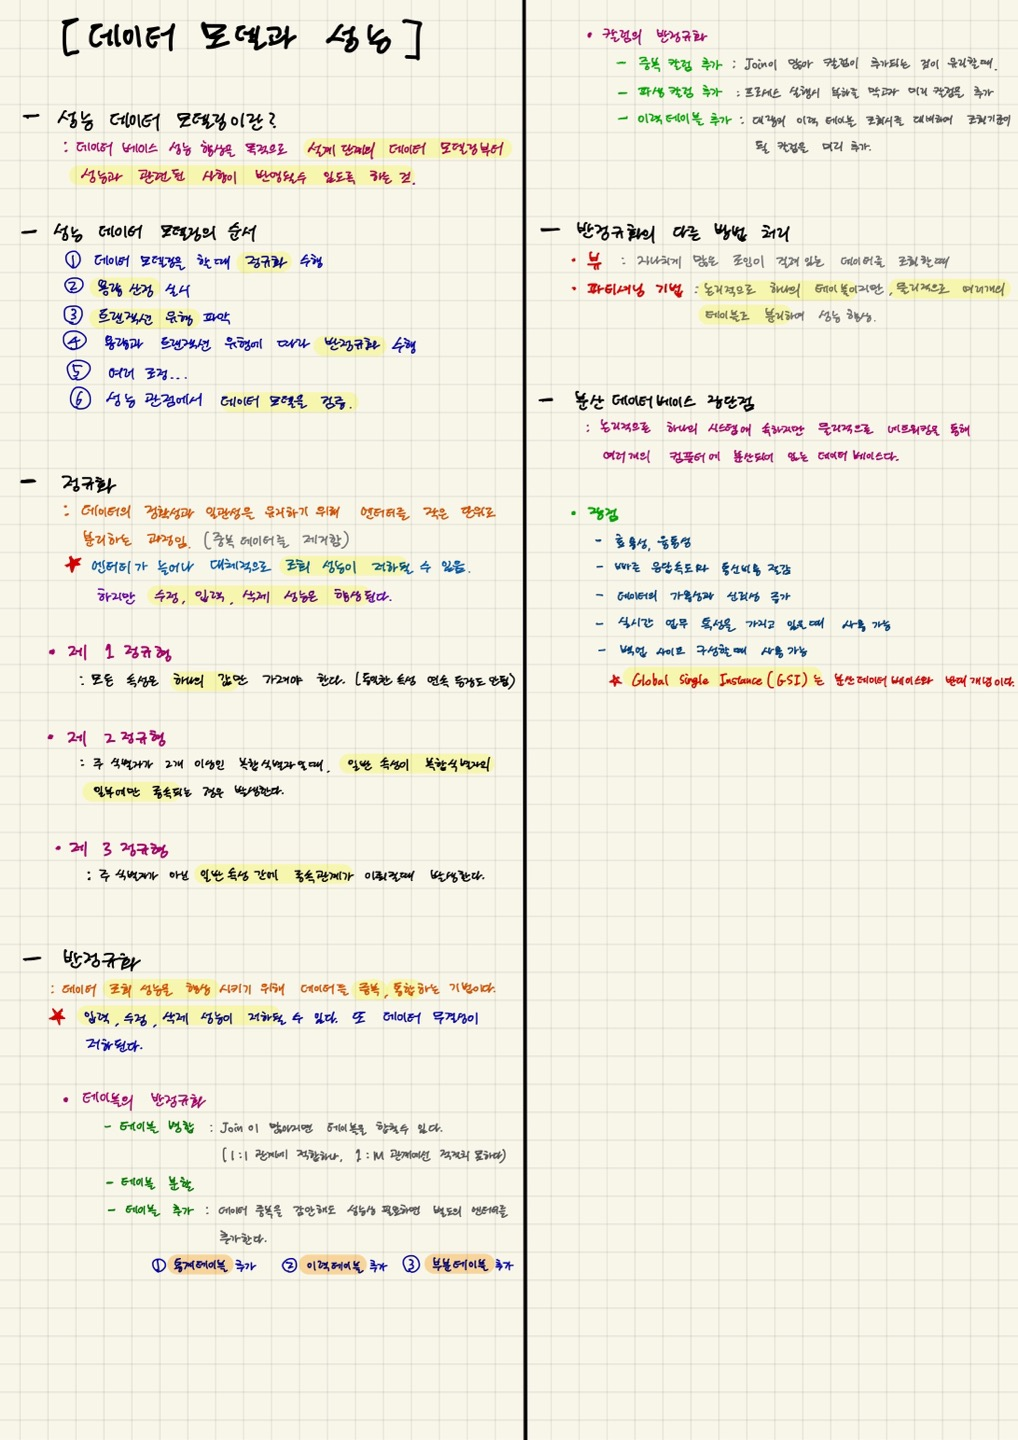 [데이터 모델과 성능]
- 성능 데이터 모델링이란?
: 데이터 베이스 성능 향상을 목적으로 설계단계의 데이터 모델링부터
성능과 관련된 사항이 반영될수 있도록 하는 것.
- 성능 데이터 모델링의 순서
① 데이터 모델링을 할때 정규화 수행
② 용량 산정 실시
③ 트랜잭션 유형 파악
④ 용량과 트랜잭션 유형에 따라 반정규화 수행
⑤ 여러 조정...
⑥ 성능 관점에서 데이터 모델을 검증.
- 정규화
: 데이터의 정확성과 일관성을 유지하기 위해 엔터티를 작은 단위로
분리하는 과정임. (중복 데이터를 제거함)
★ 엔터티가 늘어나 대체적으로 조회 성능이 저하될 수 있음.
하지만 수정, 입력, 삭제 성능은 향상된다.
• 제 1 정규형
: 모든 속성은 하나의 값만 가져야 한다. (동일한 속성 연속 등장도 안됨)
• 제 2 정규형
: 주 식별자가 2개 이상인 복합식별자일때, 일반 속성이 복합식별자의
일부에만 종속되는 경우 발생한다.
• 제 3 정규형
: 주 식별자가 아닌 일반 속성 간에 종속관계가 이뤄질때 발생한다.
- 반정규화
: 데이터 조회 성능을 향상 시키기 위해 데이터를 중복, 통합하는 기법이다.
★ 입력, 수정, 삭제 성능이 저하될 수 있다. 또 데이터 무결성이
저하된다.
• 테이블의 반정규화
- 테이블 병합 : Join이 많아지면 테이블을 합칠수 있다.
(1:1 관계에 적합하나, 1:M 관계에선 적절치 못하다)
- 테이블 분할
- 테이블 추가 : 데이터 중복을 감안해도 성능상 필요하면 별도의 엔터티를
추가한다.
① 통계테이블 추가 ② 이력테이블 추가 ③ 부분테이블 추가
• 칼럼의 반정규화
- 중복 칼럼 추가 : Join이 많아 칼럼이 추가되는 것이 유리할때.
- 파생 칼럼 추가 : 프로세스 실행시 부하를 막고자 미리 칼럼을 추가
- 이력테이블 추가 : 대량의 이력 테이블 조회시를 대비하여 조회기준이
될 칼럼을 미리 추가.
- 반정규화의 다른 방법 처리
• 뷰 : 지나치게 많은 조인이 걸려있는 데이터를 조회할때
• 파티셔닝 기법 : 논리적으로 하나의 테이블이지만, 물리적으로 여러개의
테이블로 분리하여 성능 향상.
- 분산 데이터베이스 장단점
: 논리적으로 하나의 시스템에 속하지만 물리적으로 네트워킹을 통해
여러개의 컴퓨터에 분산되어 있는 데이터 베이스다.
• 장점
- 효율성, 융통성
- 빠른 응답속도와 통신비용 절감
- 데이터의 가용성과 신뢰성 증가
- 실시간 업무 특성을 가지고 있을때 사용 가능
- 백업 사이트 구성할때 사용 가능
★ Global Single Instance(GSI)는 분산데이터베이스와 반대 개념이다.